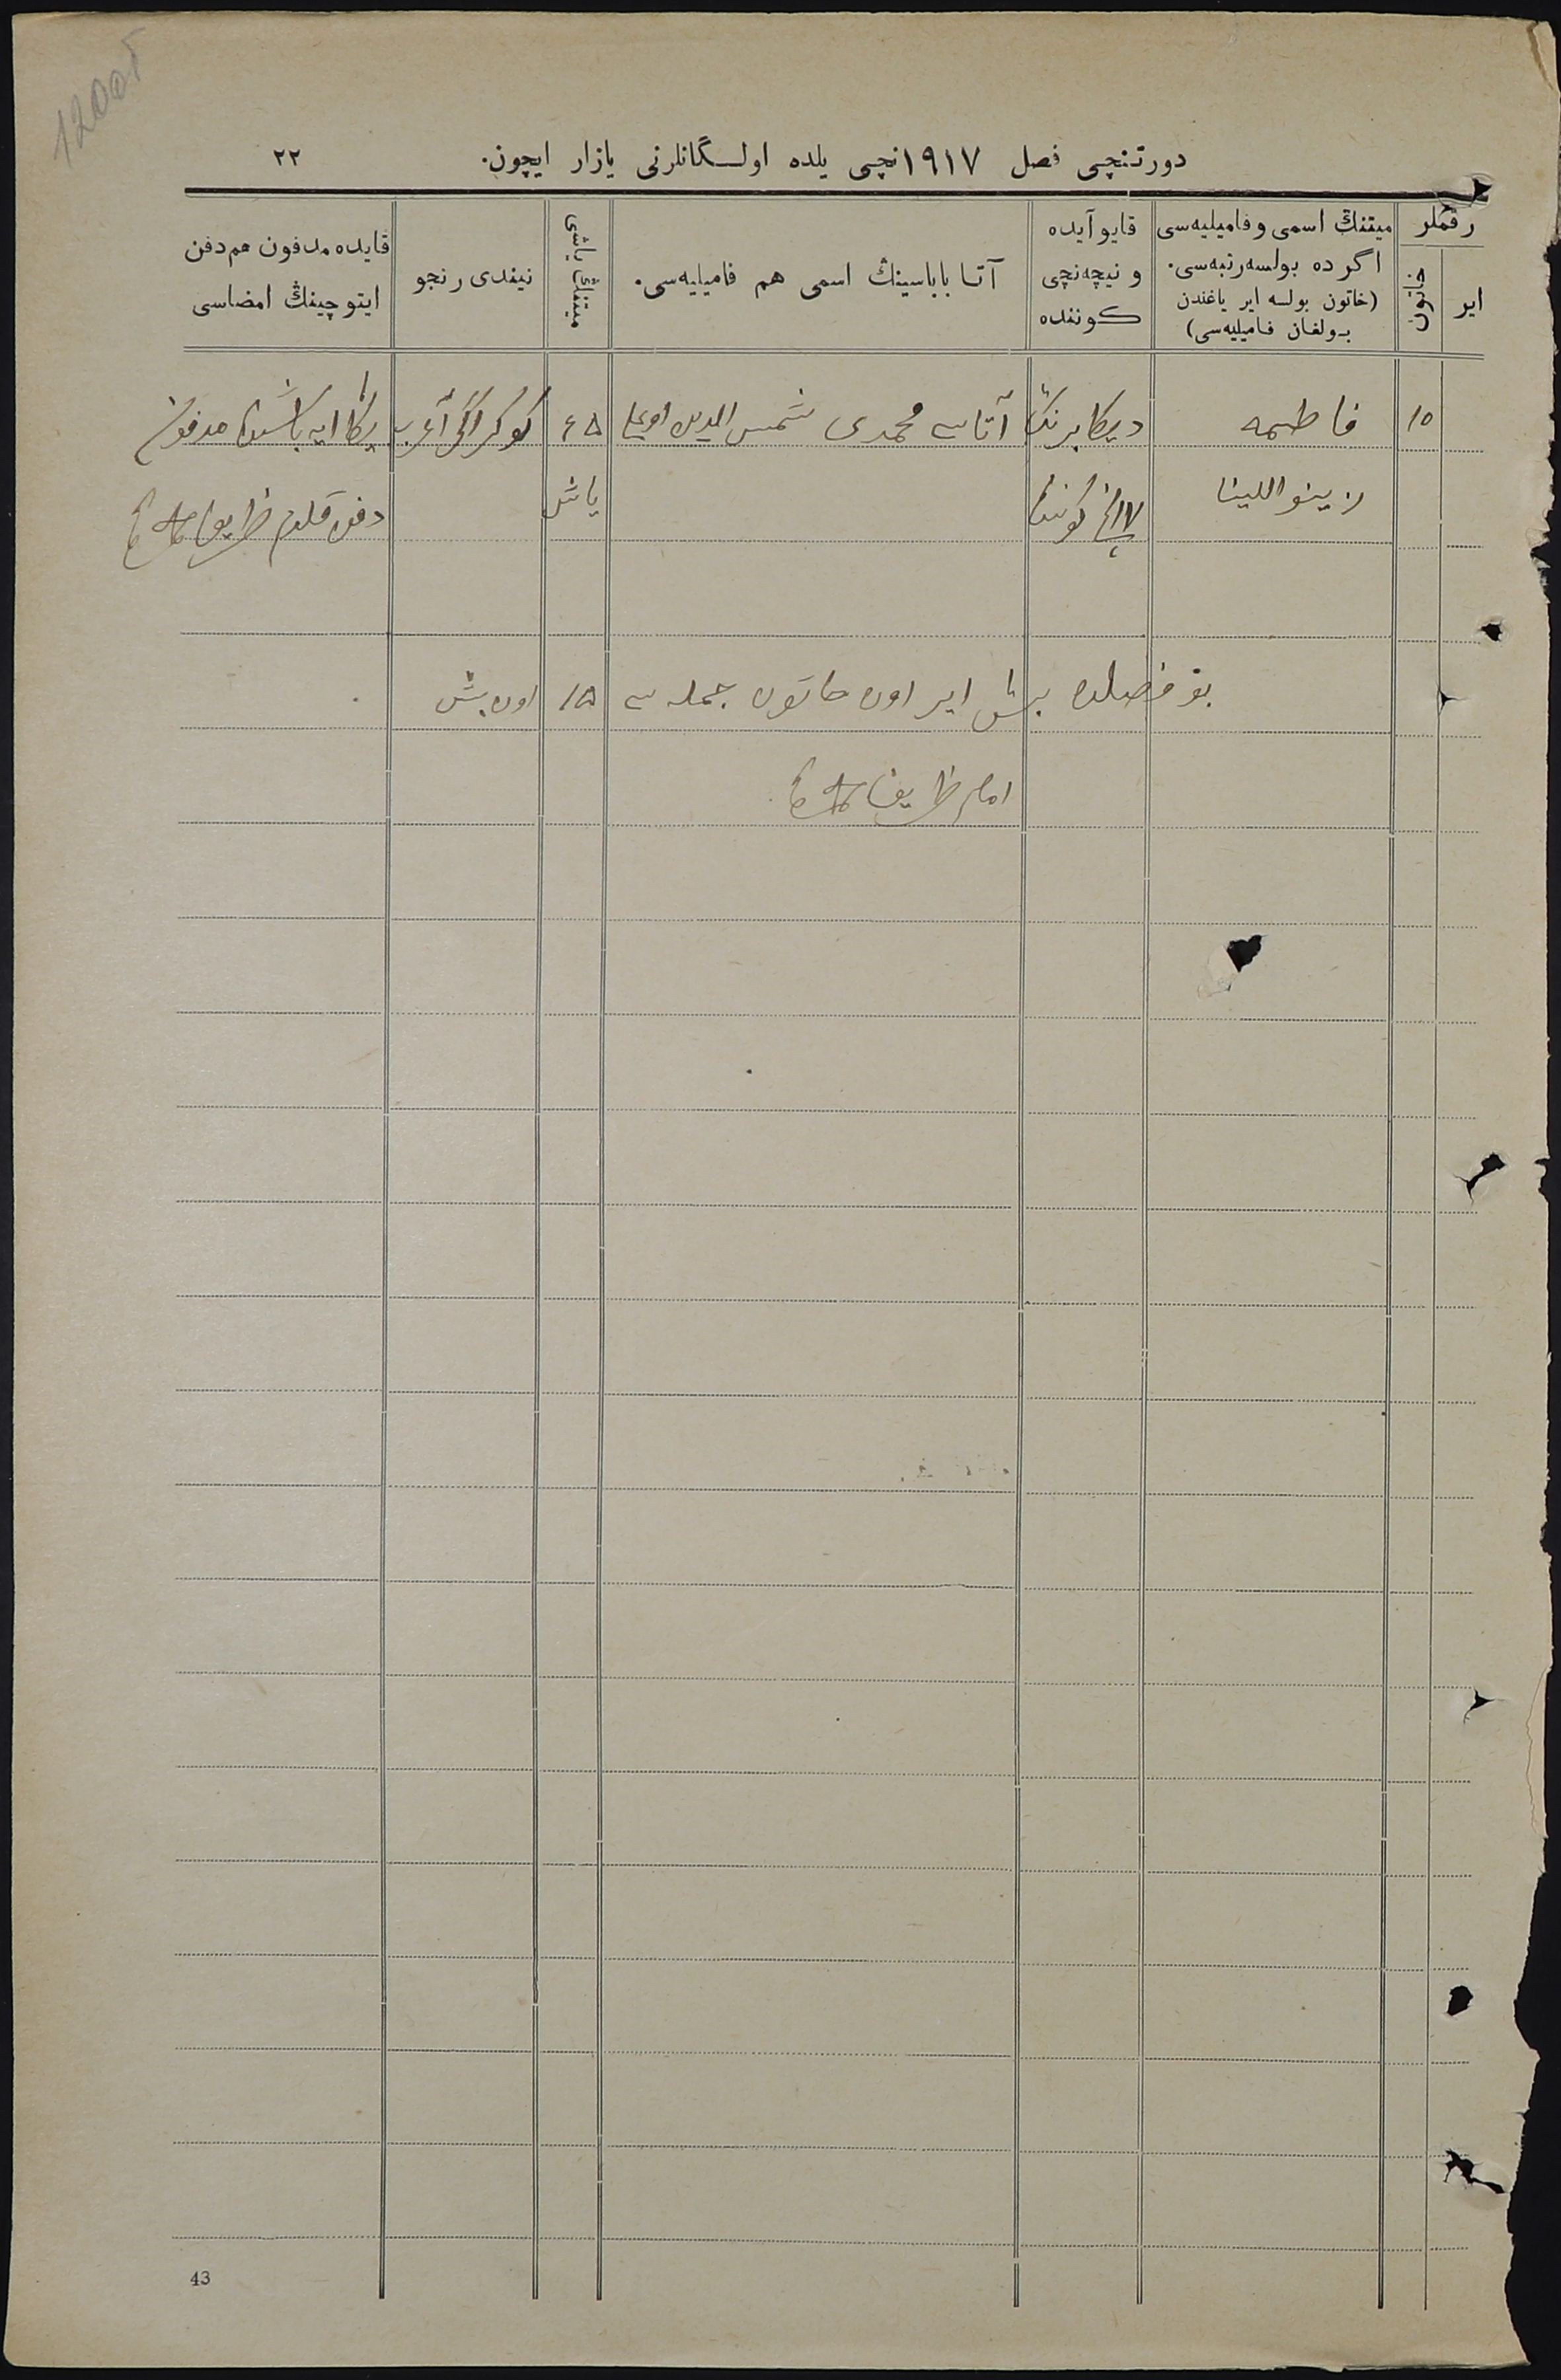 1200б
دورتنچی فصل ۱۹۱۷نچی یلده اولـسگانلرنی یازار ایچون. ۲۲
رقملر
ایر
خاتون
میتنڭ اسمی و فامیلیه‌سی
اگر ده بولسه رتبه‌سی.
(خاتون بولسه ایر یاغندن
بولغان فامیلیه‌سی)
قایو آیده
و نیچه‌نچی
کوننده
آتا باباسینڭ اسمی هم فامیلیه‌سی.
میتنڭ یاشی
نیندی رنجو
قایده مدفون هم دفن
ایتوچینڭ امضاسی
۱۵
فاطیمه
زینواللینا
دیکابرنڭ
۱۷نچی کوننده
آتاسی محمدی شمس الدین اوغلی
۶۵
یاش
کوکراگی آغرب
مدفون
دفن قلدم
بو فصلده بش ایر اون خاتون جمله سی ۱۵ اون بش
امام
43